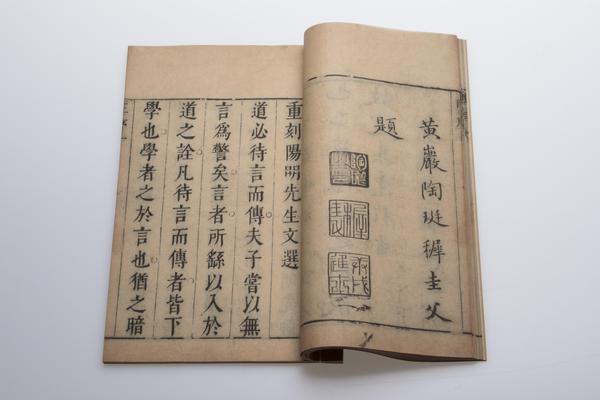 黄巖陶珽穉圭父
題
重刻陽明先生文選
道必待言而傳夫子嘗以無
言爲警矣言者所繇以入於
道之詮凡待言而傳者皆下
學也學者之於言也猶之暗